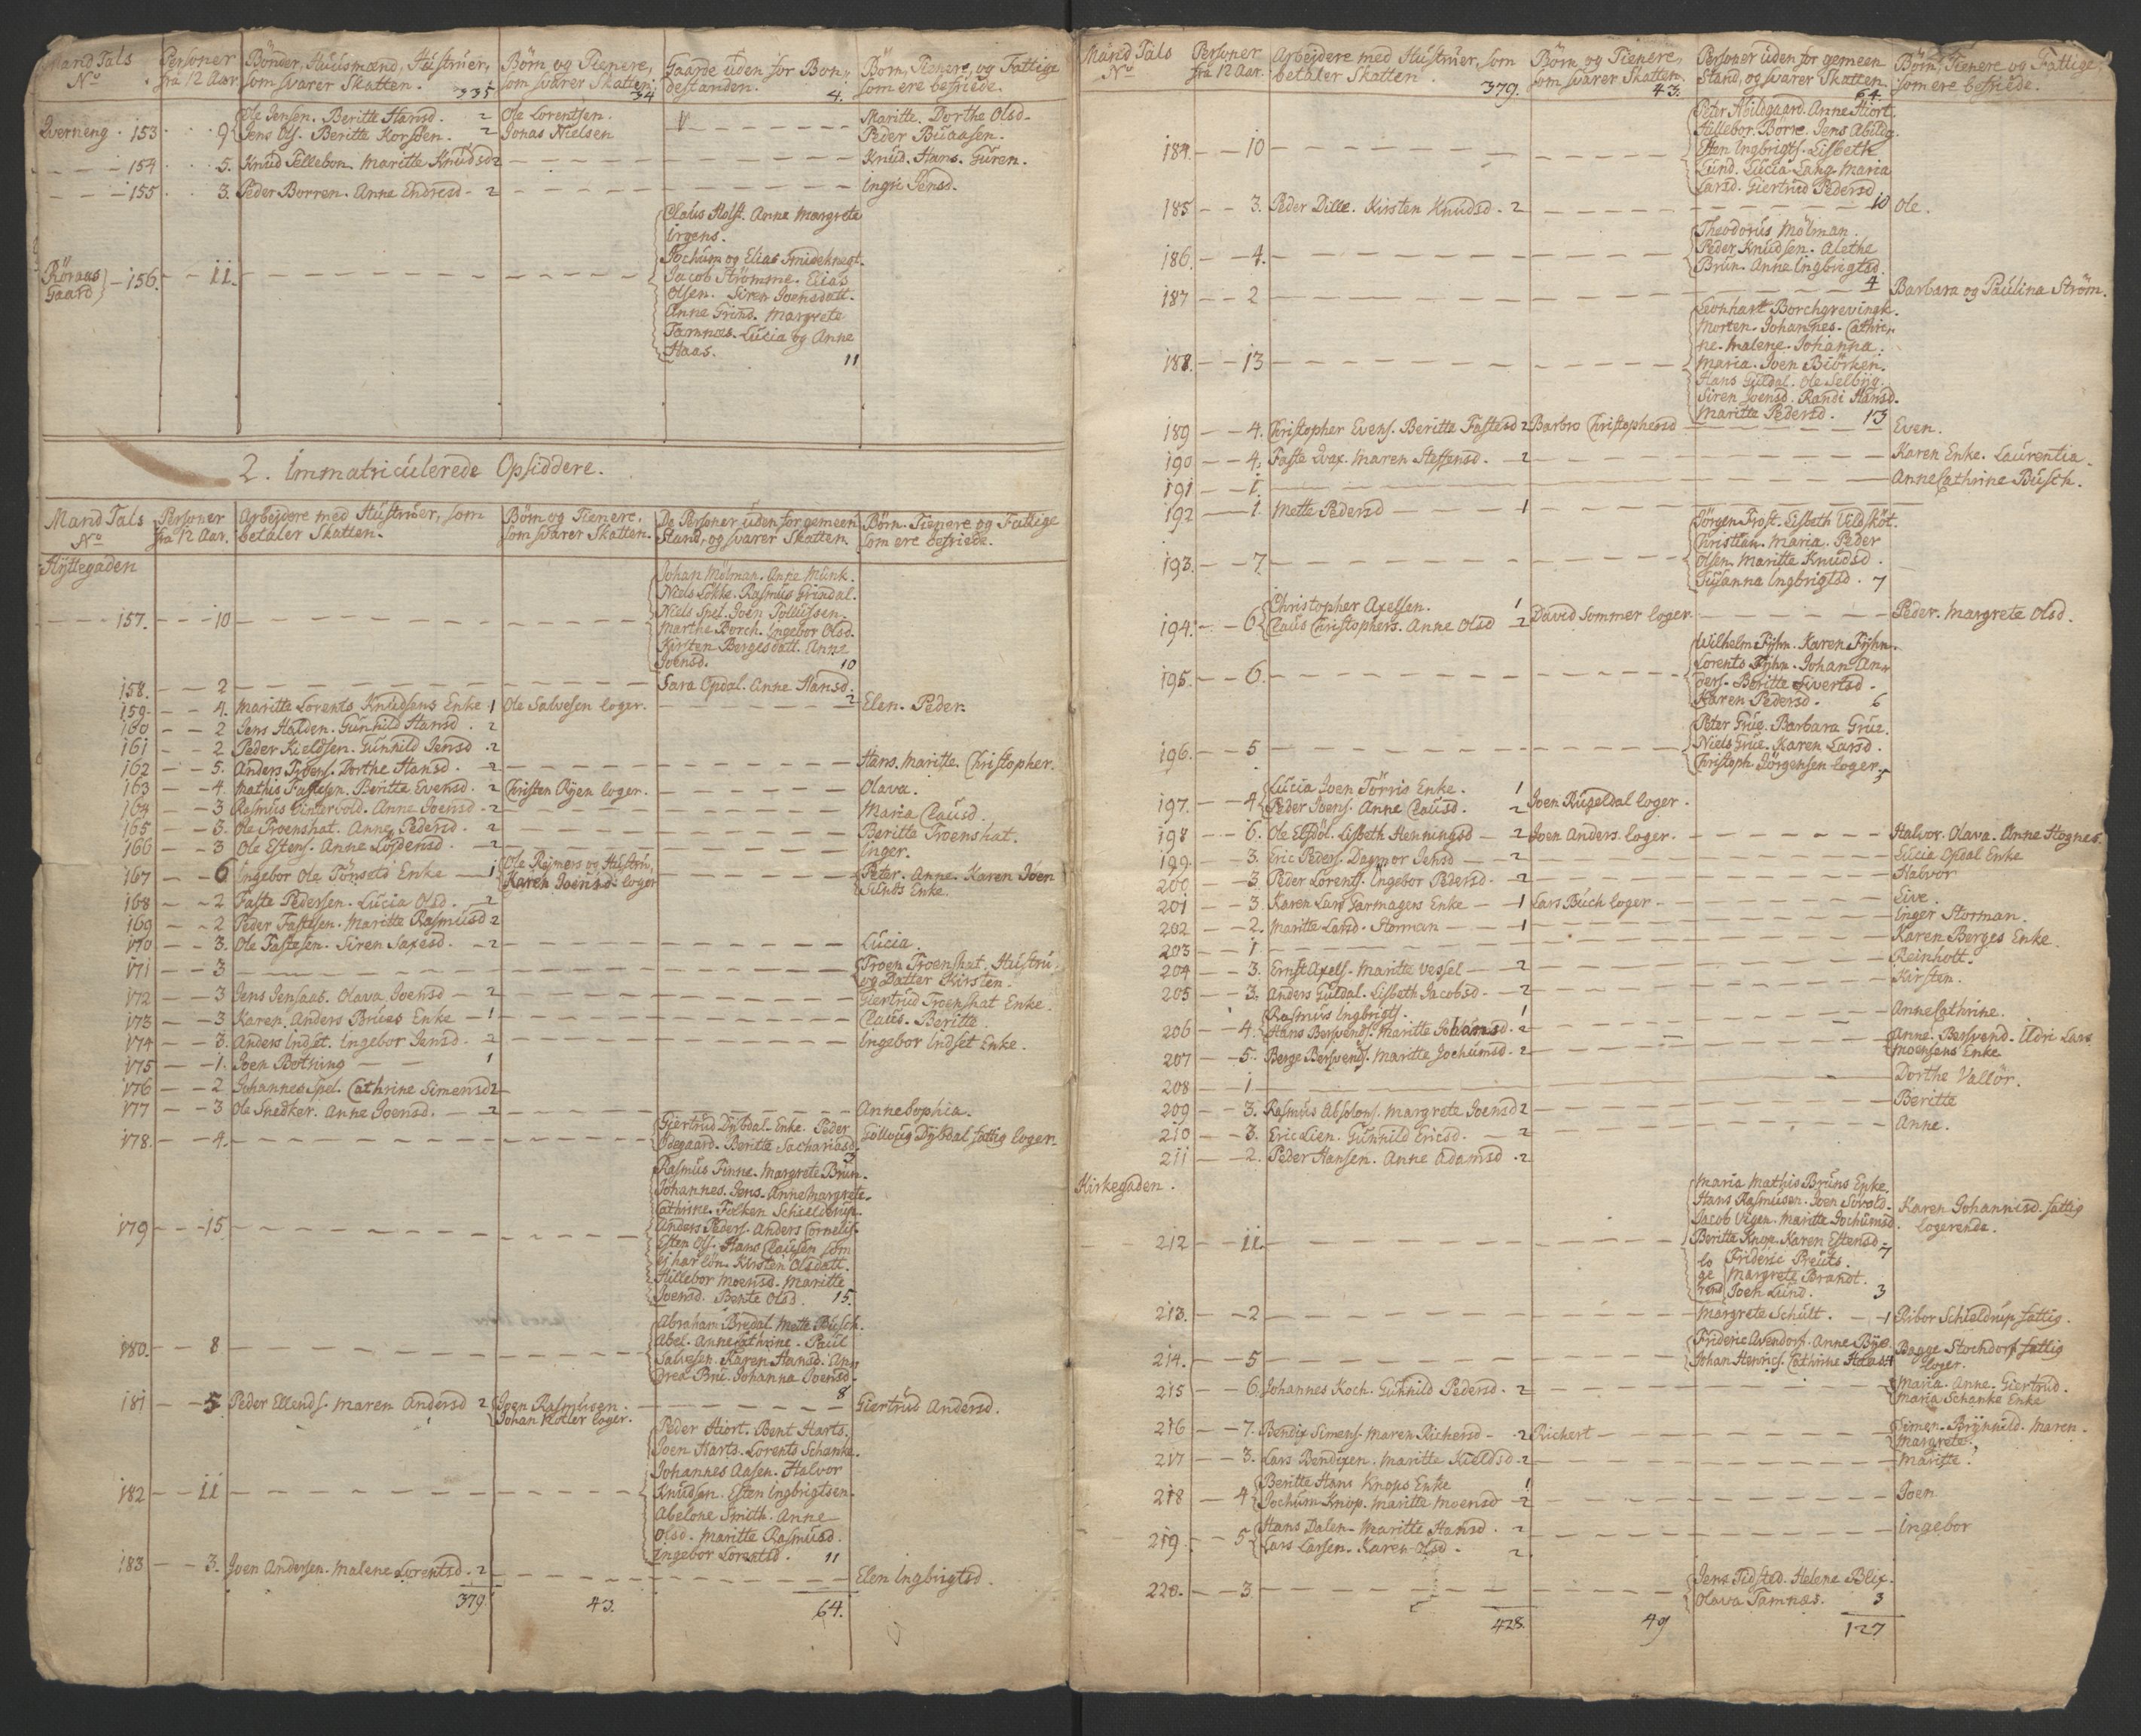 Mand Tals No
Personer fra 12 Aar.
Bönder, Huusmænd, Hustruer, som svarer Skatten. 335
Börn og Tienere, som svarer Skatten. 34
Gaarde uden for Bondestanden. 4.
Börn, Tienere, og Fattige som ere befriede.
Qverneng. 153 9 Ole Jensen. Beritte Hansd. 2 Ole Lorentsen. Maritte. Dorthe Olsd.
Jens Ols. Beritte Korsben. 2 Jonas Nielsen Peder Buaasen.
154 5. Knud Tellebon. Maritte Knudsd 2 Knud. Hans. Guren.
155 3. Peder Borren. Anne Endresd. 2 Ingri Jensd.
Claus Holst. Anne Margrete
Irgens.
Jochum og Elias Smideknegt.
Röraas Gaard 156. 11. Jacob Strömme. Elias
Olsen. Siren Joensdatt.
Anne Grind. Margrete
Tamnæs. Lucia og Anne
Haas. 11
2. Immatriculerede Opsiddere.
Mand Tals No
Personer fra 12 Aar.
Arbejdere med Hustruer, som betaler Skatten.
Börn og Tienere, som svarer Skatten.
De Personer uden for gemeen Stand, og svarer Skatten.
Börn. Tienere og Fattige som ere befriede.
Hyttegaden
Johan Mölman. Anne Munk.
Niels Lökke. Rasmus Grindal.
157. 10 Niels Spel. Joen Tollussen.
Marthe Borch. Ingebor Olsd.
Kirsten Bergesdatt. Anne
Joensd. 10
158. 2 Sara Opdal. Anne Hansd. 2
159. 4. Maritte Lorents Knudsens Enke 1 Ole Salvesen loger. Elen. Peder.
160 2 Jens Halden. Gunhild Hansd. 2
161 2 Peder Kieldsen. Gunhild Jensd. 2
162 5. Anders Troens. Dorthe Hansd. 2 Hans. Maritte. Christopher.
163 4. Mathis Fastesen. Beritte Evensd. 2 Christen Ryen loger. Olava.
164 3 Rasmus Vintervold. Anne Joensd. 2 Maria Clausd.
165 3. Ole Troenshat. Anne Pedersd. 2 Beritte Troenshat.
166 3 Ole Estens. Anne Lösdensd. 2 Inger.
167 6 Ingebor Ole Tönseld Enke 1 Ole Rejmers og Hustru, Karen Joensd. loger Peter. Anne. Karen Joen
Slends Enke.
168 2 Faste Pedersen. Lucia Olsd. 2
169 2 Peder Fastesen. Maritte Rasmusd 2
170 3. Ole Fastesen. Siren Saxesd. 2 Lucia.
171 3 Troen Troenshat. Hustru,
og Datter Kirsten.
172 3 Jens Jensaas. Olava Joensd 2 Giertrud Troenshat Enke.
173 3 Karen Anders Brues Enke 1 Claus. Beritte.
174 3. Anders Indset. Ingebor Jensd. 2 Ingebor Indset Enke.
175 1. Joen Botning 1
176 2 Johannes Spel. Cathrine Simensd 2
177 3 Ole Snedker. Anne Joensd. 2 Anne Sophia.
178. 4. Giertrud Dybdal. Enke. Peder
Ødegaard. Beritte Sachariasd. 3 Sollovig Dybdal fattig loger.
Rasmus Finne. Margrete Brun.
Johannes. Jens. Anne Margrete.
Cathrine. Folken Schielderup.
179 15 Anders Peders. Anders Cornelis.
Esten Ols. Hans Clausen som
ej har lön. Kirsten Olsdatt.
Hillebor Moensd. Maritte
Joensd. Bente Olsd. 15.
Abraham Bredal. Mette Busch.
180. 8 Abel. Anne Cathrine. Paul
Salvesen. Karen Hansd. An
drea Bru. Johanna Joensd. 8
181 5 Peder Ellends. Maren Andersd 2 Joen Rasmusen. Giertrud Andersd.
Johan Koller loger.
Peder Hiort. Bent Harts.
Joen Harts. Lorents Schanke.
Johannes Aasen. Halvor
182 11 Knudsen. Esten Ingbrigtsen.
Abelone Smith. Anne
Olsd. Maritte Rasmusd.
Ingebor Lorentsd. 11
183 3. Joen Andersen. Malene Lorentsd. 2 Elen Ingbrigtsd.
379 43. 64.
Mand Tals No
Personer fra 12 Aar.
Arbejdere med Hustruer, som betaler Skatten. 379.
Börn og Tienere, som svarer Skatten. 43.
Personer uden for gemeen Stand, og svarer Skatten. 64.
Börn, Tienere og Fattige, som ere befriede.
Peter Abilegaard. Anne Hiort.
Hillebor. Börre. Jens Abildg.
184. 10 Sten Ingbrigts. Lisbeth
Lund. Lucia Lang. Maria
Larsd. Giertrud Pedersd 10
185 3. Peder Dille. Kirsten Knudsd. 2 Ole.
Theodorus Mölman.
186. 4. Peder Knudsen. Alethe
Brun. Anne Ingbrigtsd. 4
187 2 Barbara og Paulina Ström.
Leonhart Borchgrevingk.
Morten. Johannes. Cathri
ne. Malene. Johanna.
188. 13 Maria. Joen Biörken.
Hans Guldal. Ole Selbyg.
Siren Joensd. Randi Hansd.
Maritte Pedersd. 13
189 4. Christopher Evens. Beritte Fastesd 2 Barbro Christophersd Even.
190 4. Faste Qvax. Maren Steffensd. 2 Karen Enke. Laurentia.
191 1. Anne Cathrine Busch.
192 1. Mette Pedersd 1
Jörgen Frost. Lisbeth Vildsköt.
193. 7. Christian. Maria. Peder
Olsen. Maritte Knudsd.
Susanna Ingbrigtsd. 7
194. 6 Christopher Axelsen. 1
Claus Christophers. Anne Olsd 2 David Sommer loger Peder. Margrete Olsd.
Wilhelm Fyhn. Karen Fyhn.
195. 6. Lorents Fyhn. Johan An
ders. Beritte Sivertsd.
Karen Pedersd. 6
Peter Grue. Barbara Grue.
196. 5 Niels Grue. Karen Larsd.
Christoph Jörgensen loger. 5
197. 4 Lucia Joen Törris Enke. 1
Peder Joens. Anne Clausd. 2 Joen Rugeldal loger.
198 6. Ole Elsdöl. Lisbeth Henningsd 2 Joen Anders. loger. Halvor. Olava. Anne Hognes.
199 3. Eric Peders. Dagmor Jensd 2 Lucia Opdal Enke
200 3. Peder Lorents. Ingebor Pedersd. 2 Halvor
201 3. Karen Lars Garmagers Enke 1 Lars Buch loger Live.
202 2. Maritte Larsd. Storman 1 Inger Storman.
203 1 Karen Berges Enke.
204 3. Ernst Axels. Maritte Vessel 2 Reinholt.
205 3. Anders Guldal. Lisbeth Jacobsd. 2 Kirsten.
206 4. Rasmus Ingbrigts. 1
Hans Bersvends. Maritte Johansd. 2 Anne Cathrine.
207 5. Berge Bersvends. Maritte Jochumsd. 2 Anne. Bersvend. Ildri Lars
Moensens Enke
208 1 Dorthe Vallör.
209 3. Rasmus Absolons. Margrete Joensd 2 Beritte
210 3. Eric Lien. Gunnild Ericsd. 2 Anne.
211 2. Peder Hansen. Anne Adamsd. 2
Kirkegaden.
Maria Mathis Bruns Enke,
Hans Rasmusen. Joen Sorold.
Jacob Vigen. Maritte Jochumsd. Karen Johannisd. fattig
212 11. Beritte Knop. Karen Estensd. 7 logerende.
lo ge rend Frideric Preuts.
Margrete Brandt.
Joen Lund. 3
213. 2 Margrete Schult. 1 Ribor Schieldrup fattig.
214. 5 Frideric Avendorf. Anne Bye.
Johan Henrics. Cathrine Haas. 4 Bagge Stochdorf fattig
loger.
215 6. Johannes Koch. Gunnild Pedersd. 2 Maria. Anne. Giertrud.
Maria Schanke Enke
216 7. Bendix Simens. Maren Richersd 2 Richert Simen. Brynnild. Maren.
Margrete.
217 3. Lars Bendixen. Maritte Kieldsd. 2 Maritte.
218 4 Beritte Hans Knops Enke 1
Jochum Knop. Maritte Moensd 2 Joen
219. 5 Hans Dalen. Maritte Hansd. 2
Lars Larsen. Karen Olsd. 2 Ingebor
220. 3 Jens Tidsted. Helene Blix.
Olava Tamnæs. 3
428. 49 127